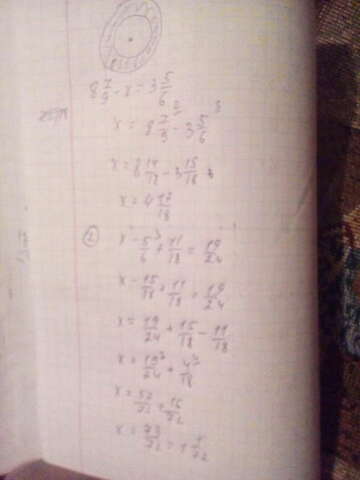 8 7/9 - x = 3 5/6
x = 8 7/9 - 3 5/6
x = 8 14/18 - 3 15/18
x = 4 17/18
2) x - 5/6 + 11/18 = 19/24
x - 15/18 + 11/18 = 19/24
x = 19/24 + 15/18 - 11/18
x = 19/24 + 4/18
x = 57/72 + 16/72
x = 73/72 = 1 1/72